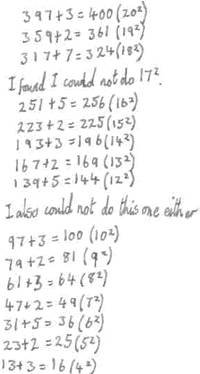 397+3=400(20²)
359+2=361(19²)
317+7=324(18²)
I found I could not do 17².
251+5=256(16²)
223+2=225(15²)
193+3=196(14²)
167+2=169(13²)
139+5=144(12²)
I also could not do this one either
97+3=100(10²)
79+2=81(9²)
61+3=64(8²)
47+2=49(7²)
31+5=36(6²)
23+2=25(5²)
13+3=16(4²)